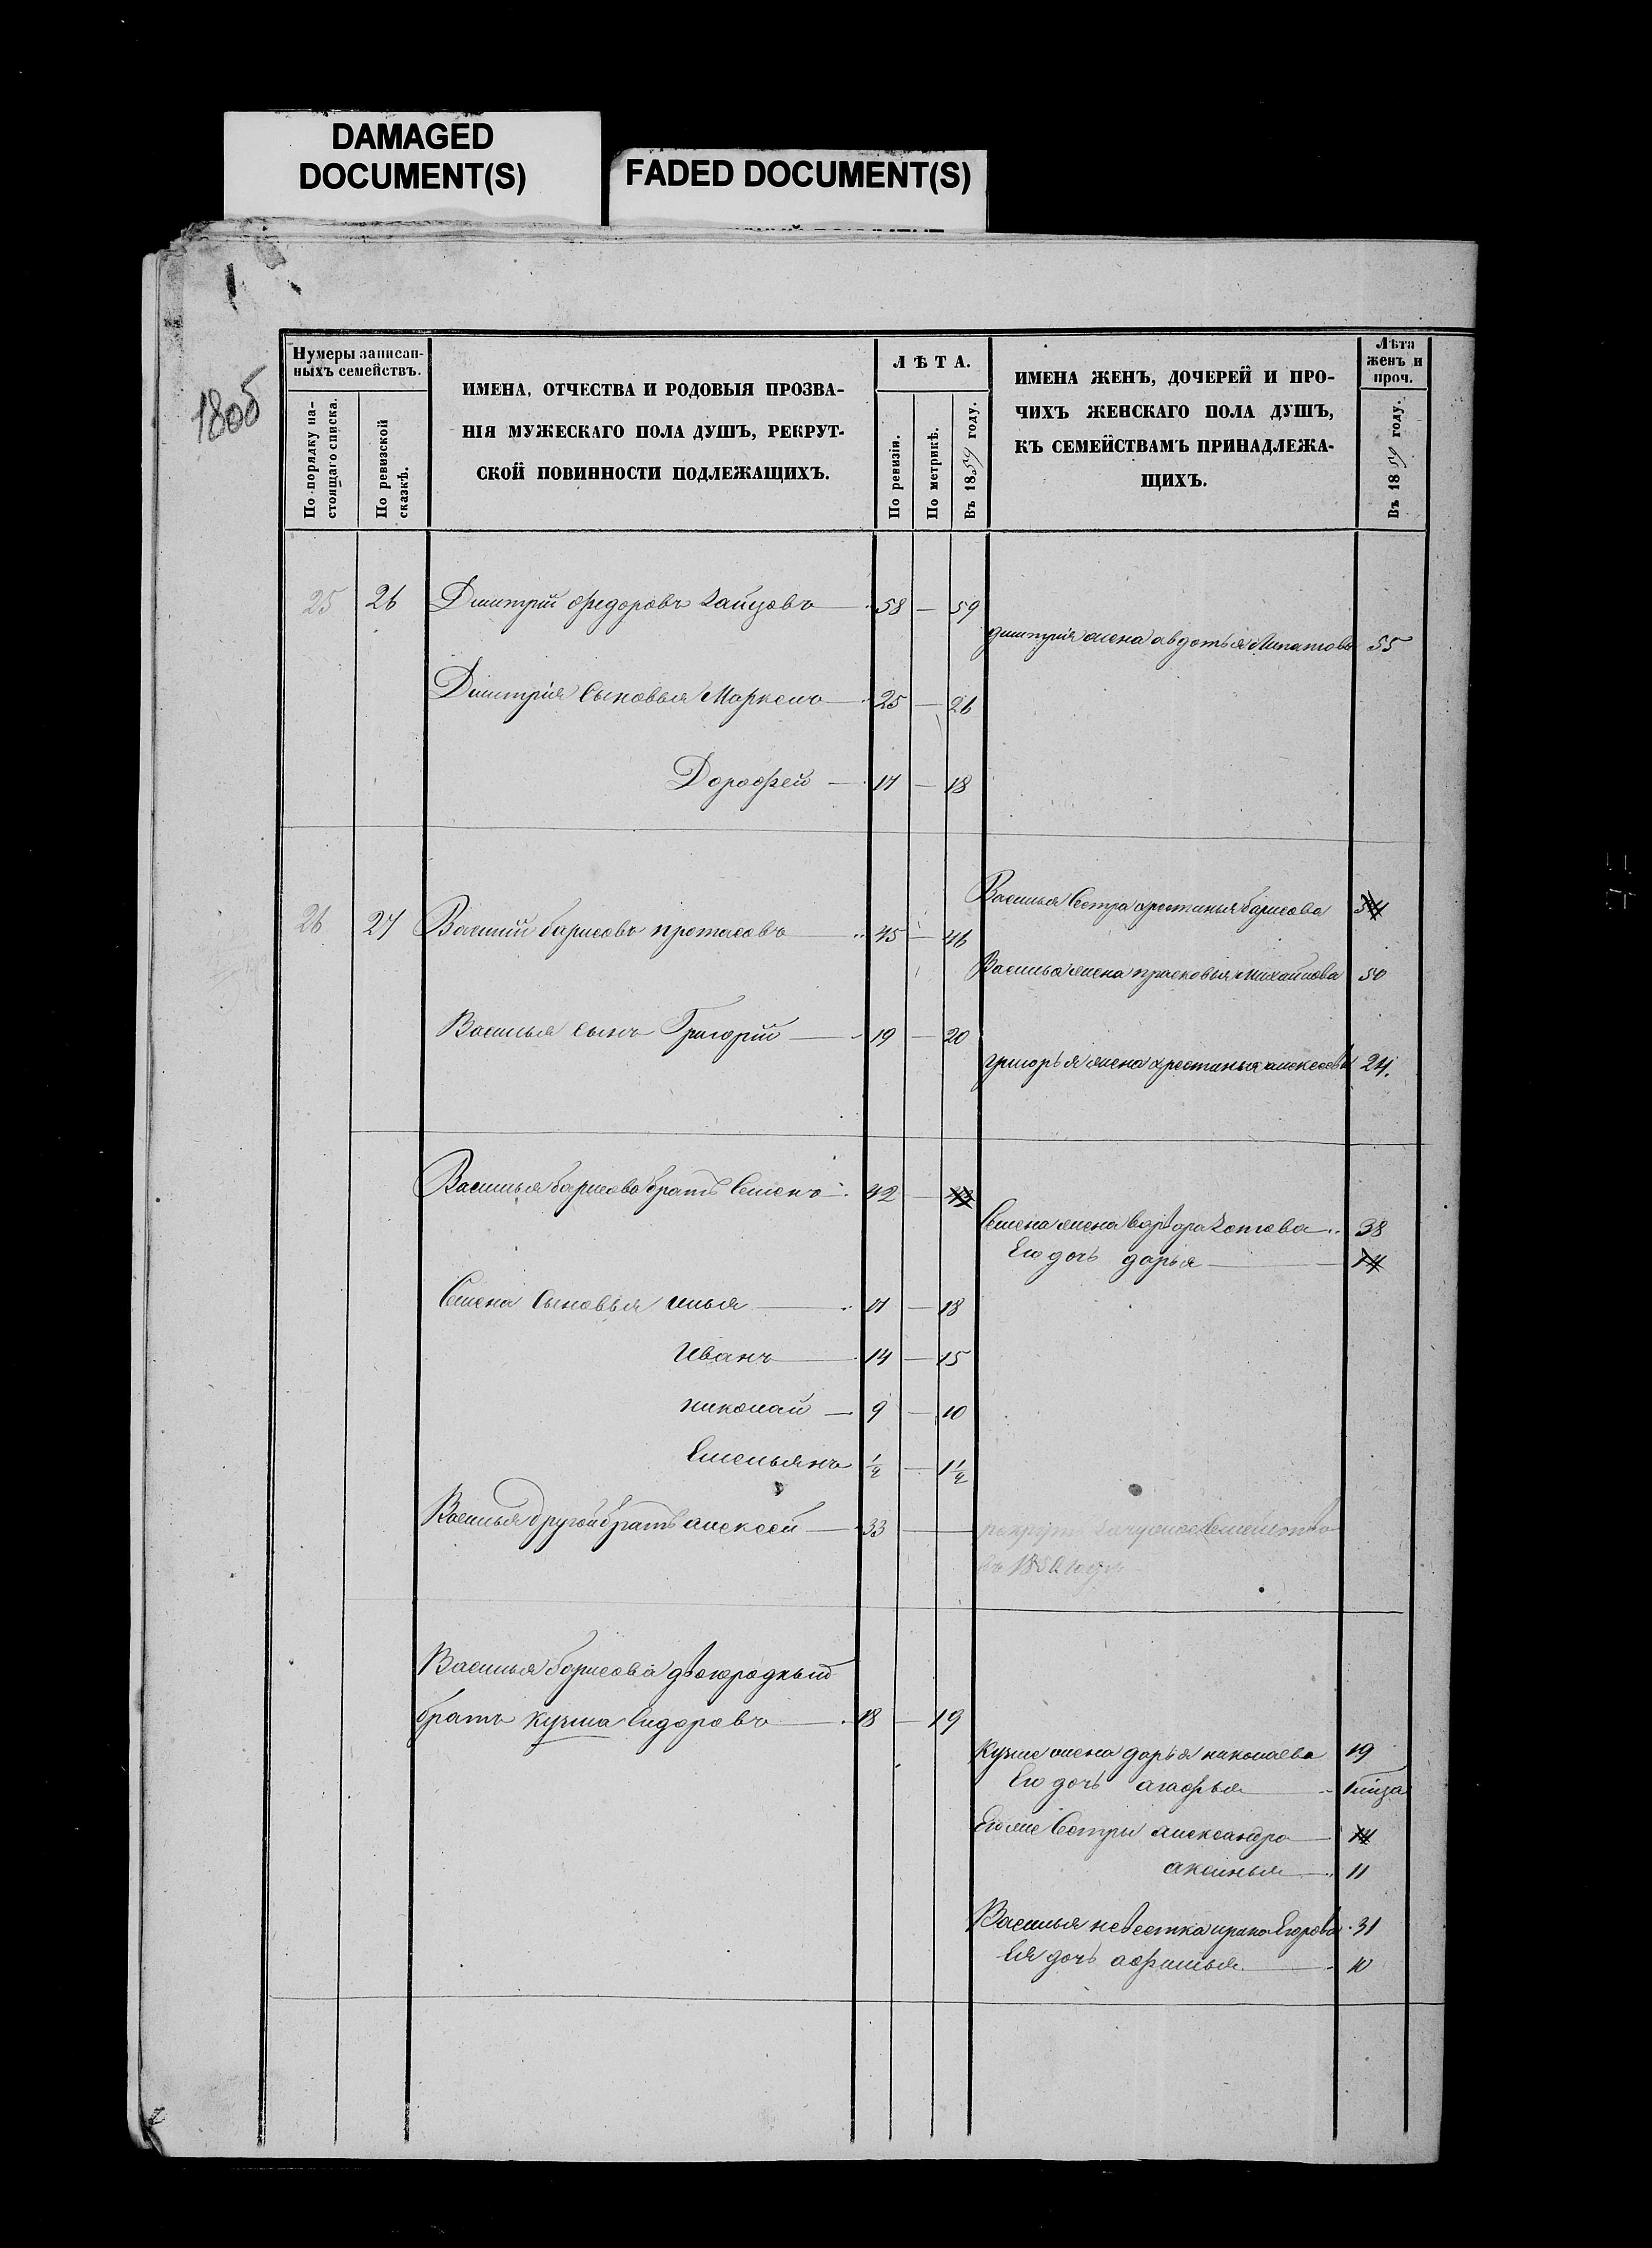 DAMAGED
DOCUMENT(S)
FADED DOCUMENT(S)
180об
Нумеры записан-
ныхъ семействъ.
По порядку на-
стоящаго списка.
По ревизской
сказкѣ.
ИМЕНА, ОТЧЕСТВА И РОДОВЫЯ ПРОЗВА-
НІЯ МУЖЕСКАГО ПОЛА ДУШЪ, РЕКРУТ-
СКОЙ ПОВИННОСТИ ПОДЛЕЖАЩИХЪ.
ЛѢТА.
По ревизіи.
По метрикѣ.
Въ 1859 году.
ИМЕНА ЖЕНЪ, ДОЧЕРЕЙ И ПРО-
ЧИХЪ ЖЕНСКАГО ПОЛА ДУШЪ,
КЪ СЕМЕЙСТВАМЪ ПРИНАДЛЕЖА-
ЩИХЪ.
Лѣта
женъ и
проч.
Въ 1859 году.
25 26 Дмитрій Федоровъ Зайцовъ 58 — 59
дмитрія жена авдотья Липатова 55
Дмитрія Сыновья Маркелъ 25 — 26
Дорофей 17 — 18
Василья Сестра хрестинья борисова 34
26 27 Василий борисовъ протасовъ 45 — 46
Василья жена прасковья михайлова 50
Василья сынъ Григорій 19 — 20
григорья жена хрестинья алексеева 24.
Василья борисова братъ Семенъ 42 — 43
Семена жена варвара Зотова 38
Его дочь дарья 14
Семена Сыновья илья 17 — 18
иванъ 14 — 15
николай 9 — 10
Емельянъ ½ — 1½
Василья другой братъ алексей 33 —
Василья борисова двоюродный
братъ кузма Сидоровъ 18 — 19
Кузме жена дарья николаева 19
Его дочь агафья
Его же Сестры александра 14
аксинья 11
Василья невестка ирина Егорова 31
Ея дочь афимья 10